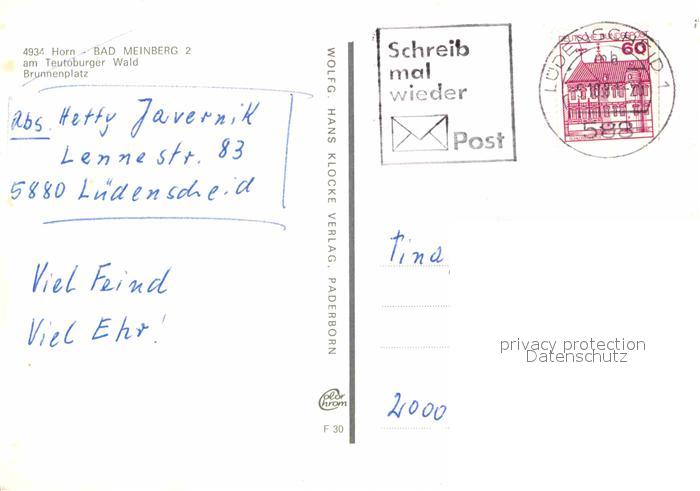 4934 Horn - BAD MEINBERG 2
am Teutoburger Wald
Brunnenplatz
abs. Hetty Javernik
Lennestr. 83
5880 Lüdenscheid
Viel Feind
Viel Ehr!
WOLFG. HANS KLOCKE VERLAG, PADERBORN
color
chrom
F 30
Schreib
mal
wieder
Post
LÜDENSCHEID 1
588
60
Tina
privacy protection
Datenschutz
2000